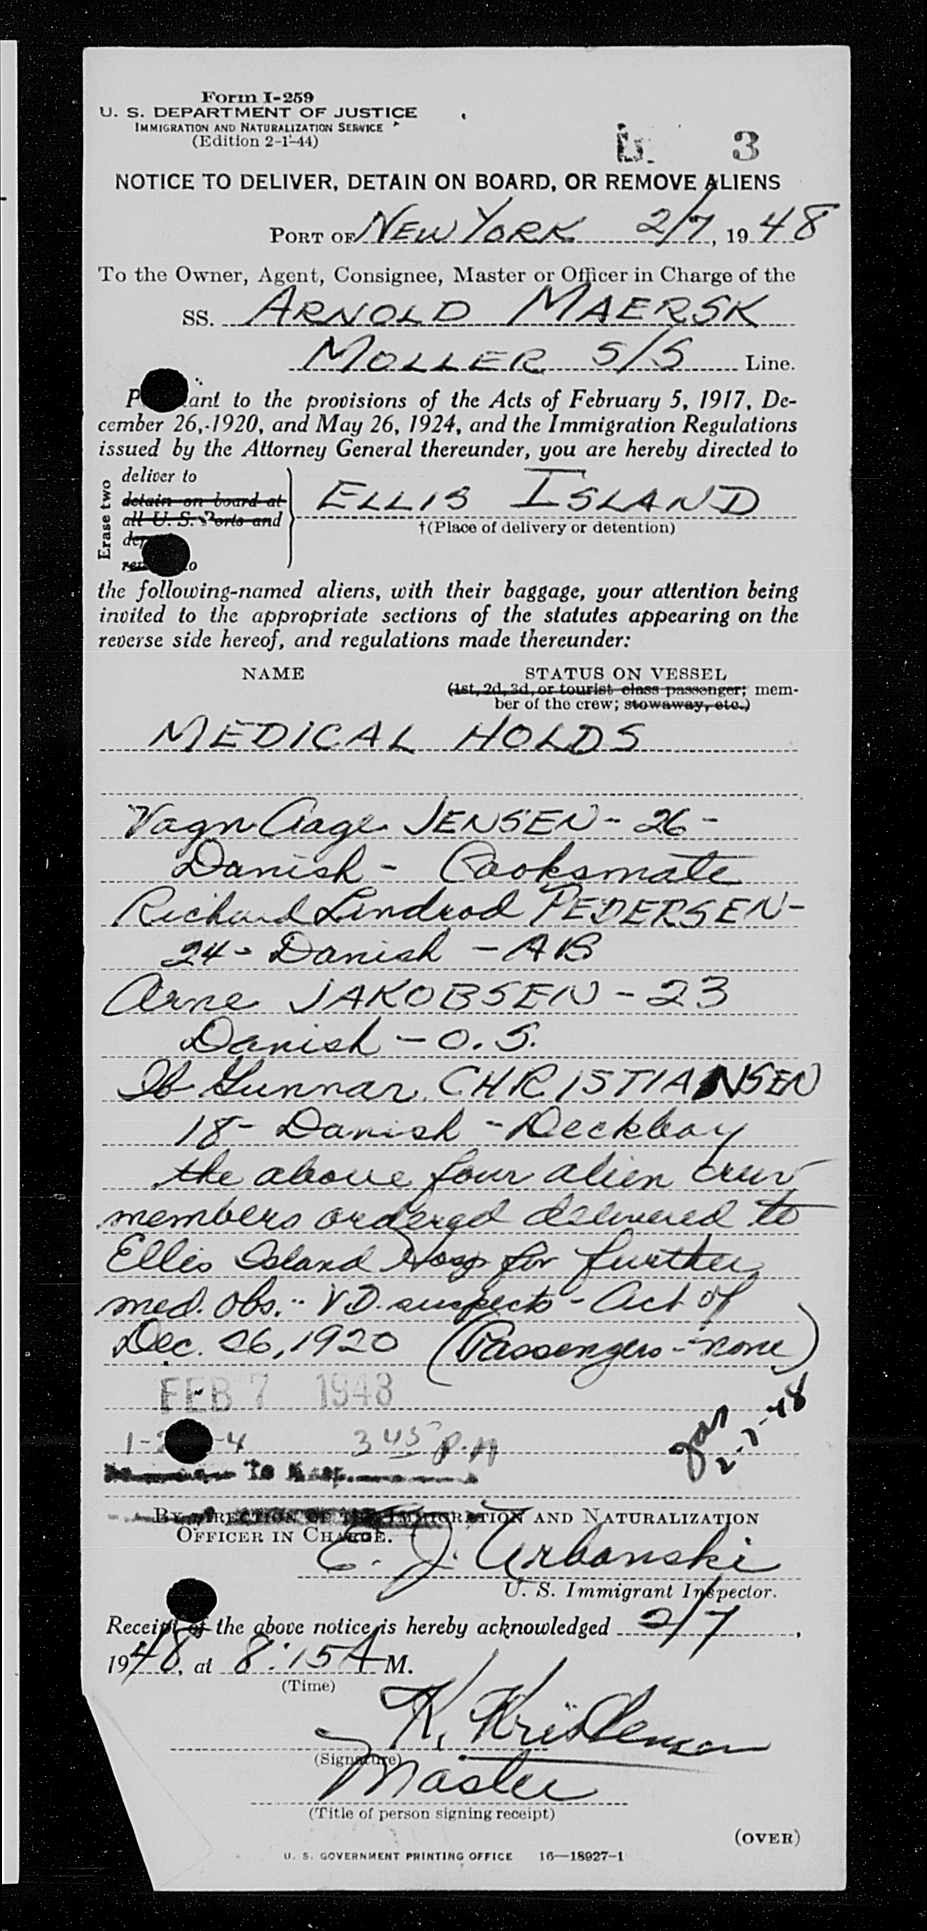 Form I-259
U. S. DEPARTMENT OF JUSTICE
IMMIGRATION AND NATURALIZATION SERVICE
(Edition 2-1-44)
3
NOTICE TO DELIVER, DETAIN ON BOARD, OR REMOVE ALIENS
PORT OF NEW YORK 2/7, 1948
To the Owner, Agent, Consignee, Master or Officer in Charge of the
SS. ARNOLD MAERSK
MOLLER S/S Line.
P ant to the provisions of the Acts of February 5, 1917, De-
cember 26, 1920, and May 26, 1924, and the Immigration Regulations
issued by the Attorney General thereunder, you are hereby directed to
Erase two
deliver to
detain on board at
all U. S. Ports and
ELLIS ISLAND
†(Place of delivery or detention)
the following-named aliens, with their baggage, your attention being
invited to the appropriate sections of the statutes appearing on the
reverse side hereof, and regulations made thereunder:
NAME STATUS ON VESSEL
(1st, 2d, 3d, or tourist class passenger; mem-
ber of the crew; stowaway, etc.)
MEDICAL HOLDS
Vagn Aage JENSEN - 26 -
Danish - Cooksmate
Richard Lindrod PEDERSEN -
24 - Danish - AB
Arne JAKOBSEN - 23
Danish - O.S.
Ib Gunnar CHRISTIANSEN
18 - Danish - Deckboy
the above four alien crew
members ordered delivered to
Ellis Island Hosp for further
med. obs. - VD. suspects - Act of
Dec. 26, 1920 (Passengers - none)
FEB 7 1948
3 45 P.M
2-7-48
To Hosp.
BY DIRECTION OF THE IMMIGRATION AND NATURALIZATION
OFFICER IN CHARGE.
E. J. Urbanski
U. S. Immigrant Inspector.
Receipt of the above notice is hereby acknowledged 2/7,
1948, at 8:15 A M.
(Time)
K. Kristensen
(Signature)
Master
(Title of person signing receipt)
(OVER)
U. S. GOVERNMENT PRINTING OFFICE 16—18927-1